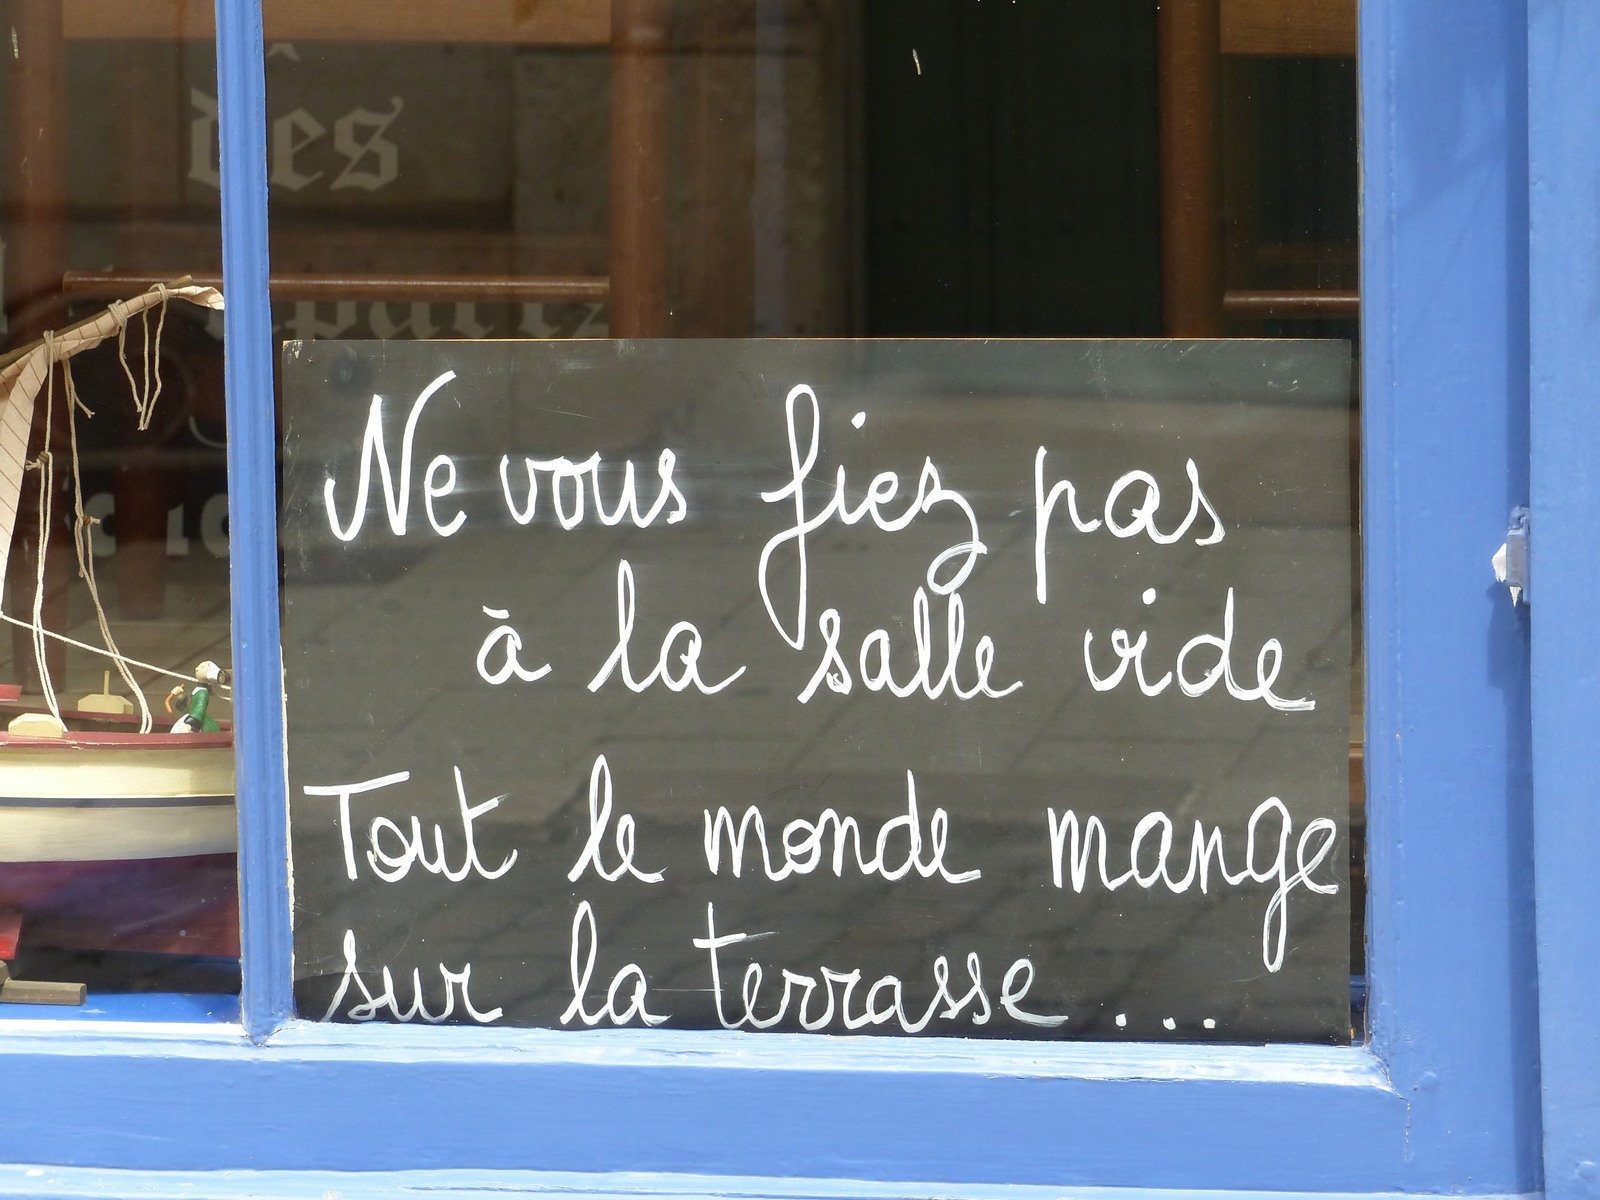 des
Ne vous fiez pas
à la salle vide
Tout le monde mange
sur la terrasse ...